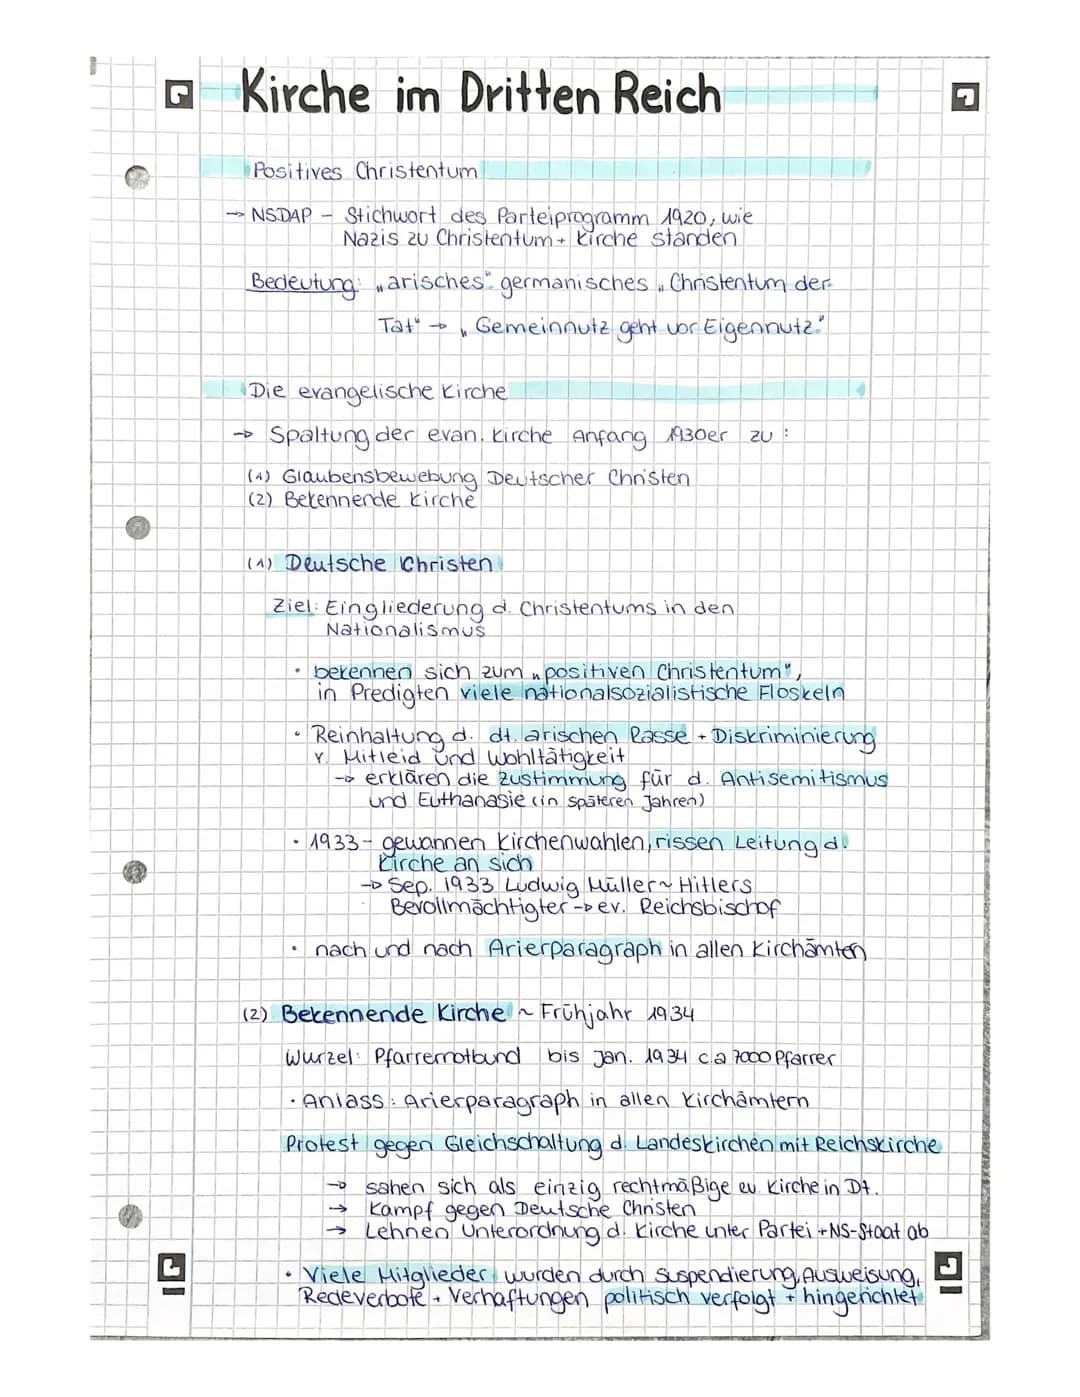 Kirche im Dritten Reich
Positives Christentum
→ NSDAP - Stichwort des Parteiprogramm 1920, wie
Nazis zu Christentum + Kirche standen
Bedeutung: „arisches" germanisches „Christentum der
Tat" → „Gemeinnutz geht vor Eigennutz."
Die evangelische Kirche
→ Spaltung der evan. Kirche Anfang 1930er zu :
(1) Glaubensbewebung Deutscher Christen
(2) Bekennende Kirche
(1) Deutsche Christen
Ziel: Eingliederung d. Christentums in den
Nationalismus
• bekennen sich zum „positiven Christentum",
in Predigten viele nationalsozialistische Floskeln
• Reinhaltung d. dt. arischen Rasse + Diskriminierung
v. Mitleid und Wohltätigkeit
→ erklären die Zustimmung für d. Antisemitismus
und Euthanasie (in späteren Jahren)
• 1933 - gewannen Kirchenwahlen, rissen Leitung d.
Kirche an sich
→ Sep. 1933 Ludwig Müller ~ Hitlers
Bevollmächtigter → ev. Reichsbischof
• nach und nach Arierparagraph in allen Kirchämtern
(2) Bekennende Kirche ~ Frühjahr 1934
Wurzel: Pfarrernotbund bis Jan. 1934 c.a 7000 Pfarrer
• Anlass: Arierparagraph in allen Kirchämtern
Protest gegen Gleichschaltung d. Landeskirchen mit Reichskirche
→ sahen sich als einzig rechtmäßige ev. Kirche in Dt.
→ Kampf gegen Deutsche Christen
→ Lehnen Unterordnung d. Kirche unter Partei + NS-Staat ab
• Viele Mitglieder wurden durch Suspendierung, Ausweisung,
Redeverbote + Verhaftungen politisch verfolgt + hingerichtet